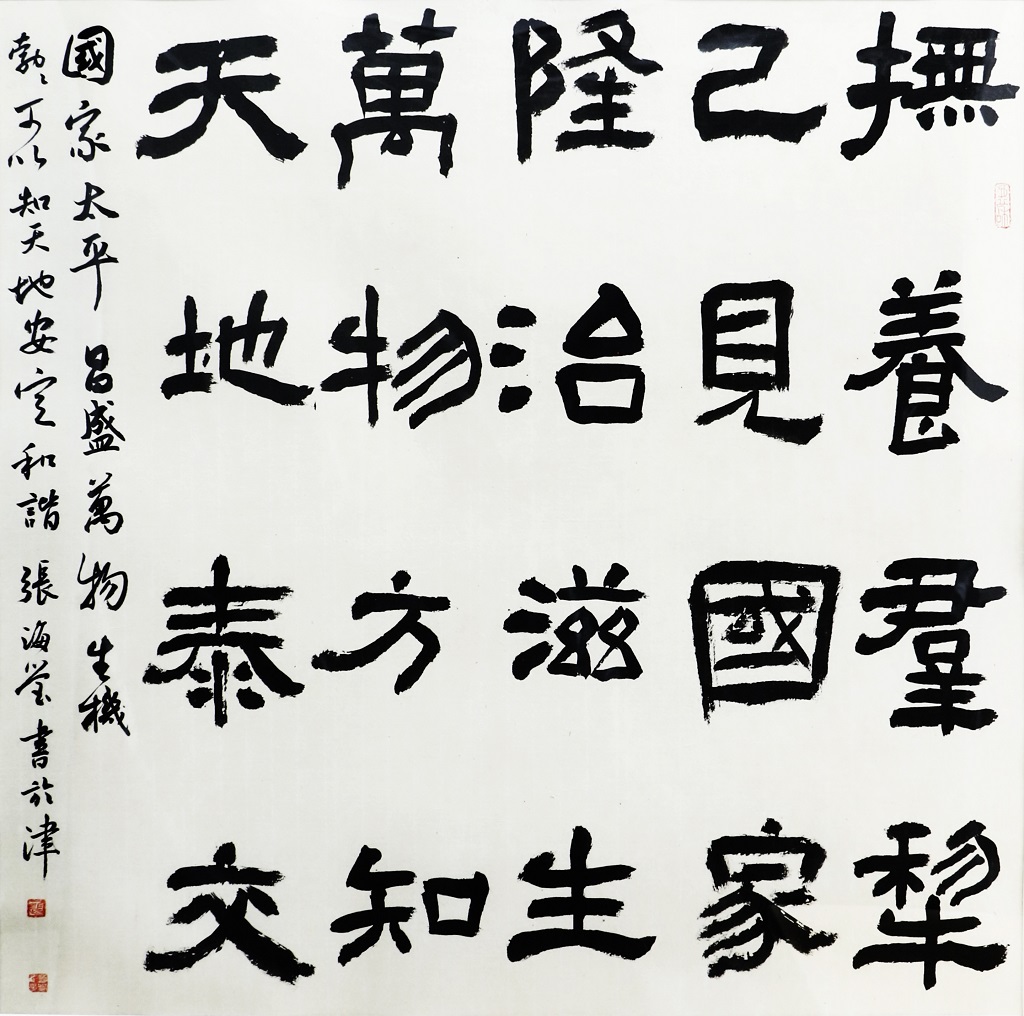 撫養羣犂
己見國家
隆治滋生
萬物方知
天地泰交
國家太平昌盛萬物生機
勃〻可以知天地安定和諧 張海瑩書於津